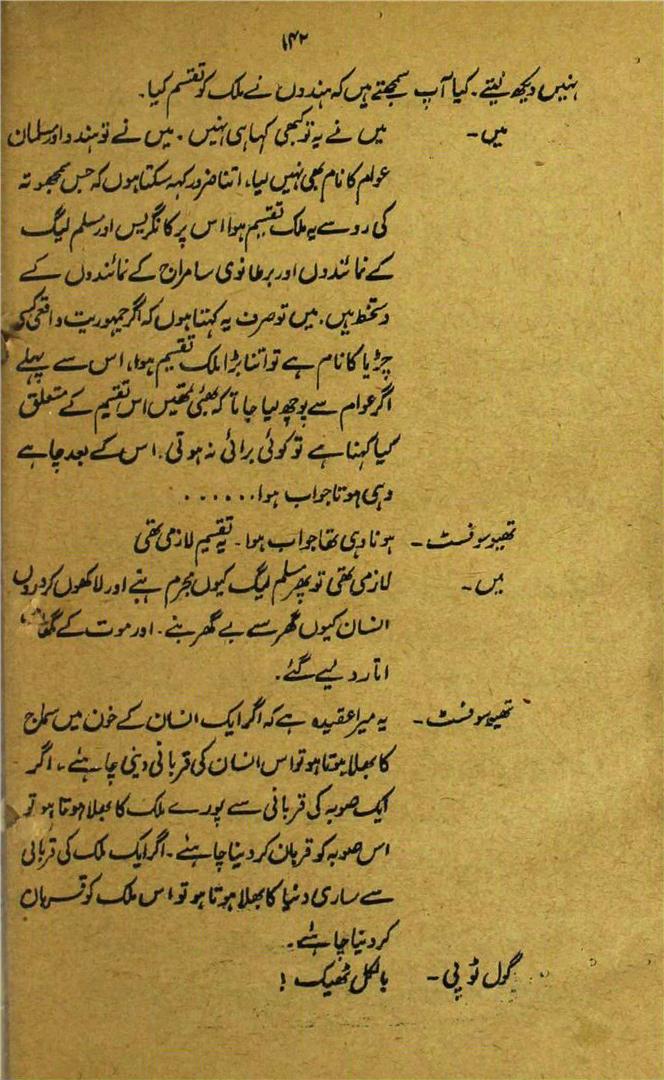 ۱۴۲
ہنیں دیکھ لیتے۔ کیا آپ سمجھتے ہیں کہ ہندوں نے ملک کو تقسیم کیا۔
میں۔ میں نے یہ تو کبھی کہا ہی ہنیں۔ میں نے تو ہندو اور مسلمان
عوام کا نام بھی نہیں لیا، اتنا ضرور کہہ سکتا ہوں کہ جس سمجھوتہ
کی رو سے یہ ملک تقسیم ہوا اس پر کانگریس اور مسلم لیگ
کے نمائندوں اور برطانوی سامراج کے نمائندوں کے
دستخط ہیں۔ میں تو صرف یہ کہتا ہوں کہ اگر جمہوریت واقعی کسی
چڑیا کا نام ہے تو اتنا بڑا ملک تقسیم ہوا، اس سے پہلے
اگر عوام سے پوچھ لیا جاتا کہ بھئی تمھیں اس تقسیم کے متعلق
کیا کہنا ہے تو کوئی برائی نہ ہوتی۔ اس کے بعد چاہے
وہی ہوتا جواب ہوا......
تھیوسوفسٹ۔ ہونا وہی تھا جواب ہوا۔ یہ تقسیم لازمی تھی
میں۔ لازمی تھی تو پھر مسلم لیگ کیوں مجرم بنے اور لاکھوں کروروں
انسان کیوں گھر سے بے گھر بنے۔ اور موت کے گھاٹ
اتار دیے گئے۔
تھیوسوفسٹ۔ یہ میرا عقیدہ ہے کہ اگر ایک انسان کے خون میں سماج
کا بھلا ہوتا ہو تو اس انسان کی قربانی دینی چاہئے۔ اگر
ایک صوبہ کی قربانی سے پورے ملک کا بھلا ہوتا ہو تو
اس صوبہ کو قربان کر دینا چاہئے۔ اگر ایک ملک کی قربانی
سے ساری دنیا کا بھلا ہوتا ہو تو اس ملک کو قربان
کر دینا چاہئے۔
گول ٹوپی۔ بالکل ٹھیک!